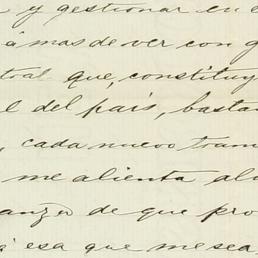 y gestionar en e
á mas de ver con g
tral que, constituy
l del país, bastan
, cada nuevo tram
me alienta al
anza de que pro
á esa que me sea,